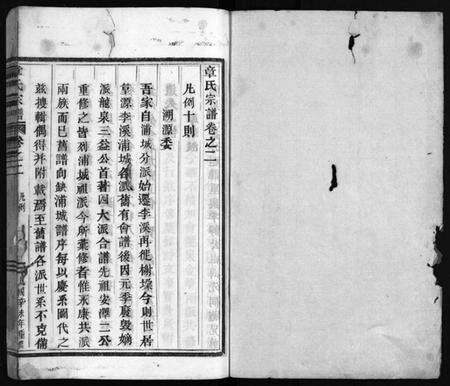 章氏宗譜卷之二
凡例十則
溯源委
吾家自浦城分派始遷李溪再徙榭墁今則世居
堂源李溪浦城各派舊有會譜後因元季廢毀嫡
派龍泉三益公首著四大派合譜先祖安澤二公
重修之皆列浦城祖派今所纂修首惟永康共派
兩族而已舊譜向缺浦城譜序每以慶系圖代之
茲搜輯偶得并附載焉至舊譜各派世系不克備
章氏宗譜 卷之二 凡例